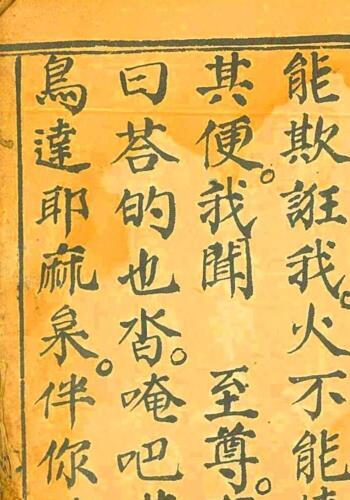 能欺誑我。火不能
其便。我聞 至尊。
曰荅的也㳫。唵吧
鳥達耶痳枲。伴你